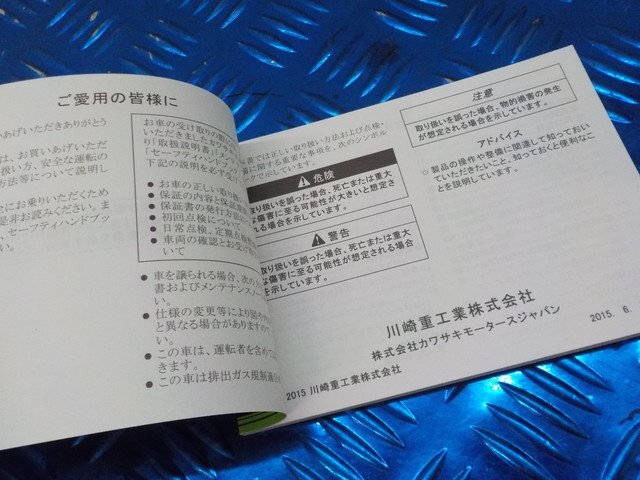 ご愛用の皆様に
いあげいただきありがとう
は、お買いあげいただ
扱い方、安全な運転の
方法等について説明し
とにお乗りいただくため
是非お読みください。ま
、セーフティハンドブッ
お車の受け取りの際
いただきましてお
「取扱説明書」「メン
「セーフティハンド
下記の説明を必ず受
● お車の正しい取り扱
● 保証の内容と保証期
● 保証書の発行方法
● 初回点検に
● 日常点検、定期点検
● 車両の確認とお受け取
いて
● 車を譲られる場合、次の方
書およびメンテナンスノー
い。
● 仕様の変更等により図や
と異なる場合がありますの
い。
● この車は、運転者を含めて
きます。
● この車は排出ガス規制適合
書では正しい取り扱い方法および点検・
備に関する重要な事項を、次のシンボル
クで示しています。
危険
取り扱いを誤った場合、死亡または重大
な傷害に至る可能性が大きいと想定さ
れる場合を示しています。
警告
取り扱いを誤った場合、死亡または重大
な傷害に至る可能性が想定される場合
を示しています。
注意
取り扱いを誤った場合、物的損害の発生
が想定される場合を示しています。
アドバイス
○ 製品の操作や整備に関連して知っておい
ていただきたいこと、知っておくと便利なこ
とを説明しています。
川崎重工業株式会社
株式会社カワサキモータースジャパン
2015 川崎重工業株式会社
2015. 6.